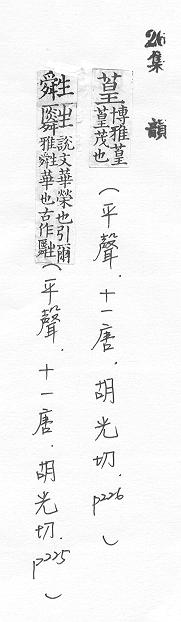 26集韻
葟 博雅葟葟茂也（平聲．十一唐．胡光切．p226）
䑞 說文華榮也引爾雅䑞華也古作（平聲．十一唐．胡光切．p225）